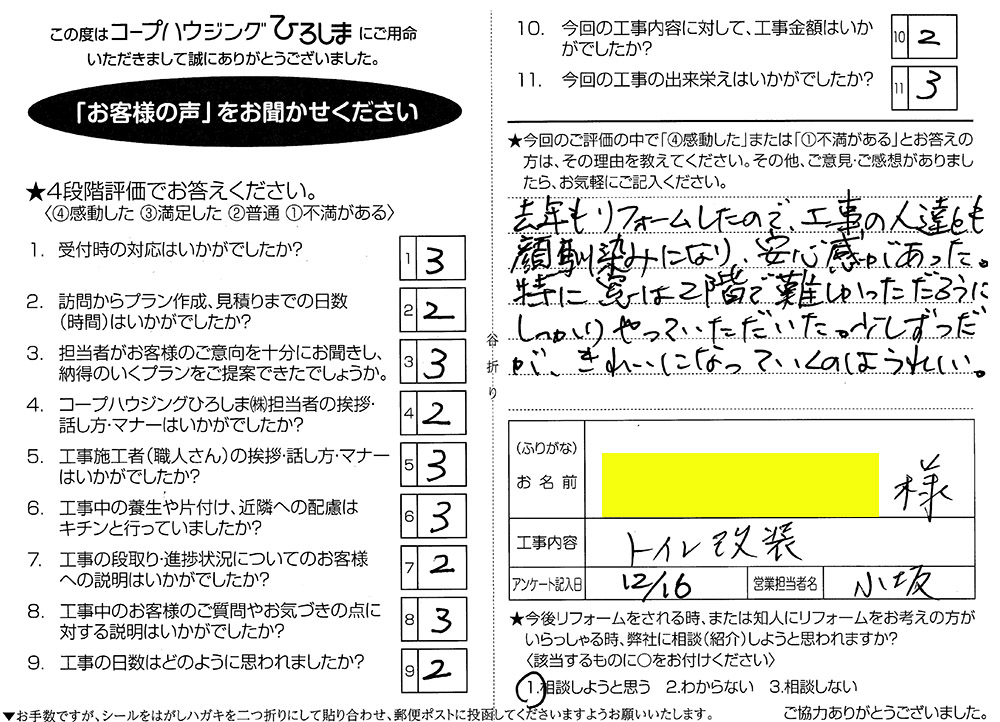 この度はコープハウジングひろしまにご用命
いただきまして誠にありがとうございました。
「お客様の声」をお聞かせください
★4段階評価でお答えください。
〈④感動した ③満足した ②普通 ①不満がある〉
1. 受付時の対応はいかがでしたか?
1 3
2. 訪問からプラン作成、見積りまでの日数
(時間)はいかがでしたか?
2 2
3. 担当者がお客様のご意向を十分にお聞きし、
納得のいくプランをご提案できたでしょうか。
3 3
4. コープハウジングひろしま㈱担当者の挨拶・
話し方・マナーはいかがでしたか?
4 2
5. 工事施工者(職人さん)の挨拶・話し方・マナー
はいかがでしたか?
5 3
6. 工事中の養生や片付け、近隣への配慮は
キチンと行っていましたか?
6 3
7. 工事の段取り・進捗状況についてのお客様
への説明はいかがでしたか?
7 2
8. 工事中のお客様のご質問やお気づきの点に
対する説明はいかがでしたか?
8 3
9. 工事の日数はどのように思われましたか?
9 2
谷折り
10. 今回の工事内容に対して、工事金額はいか
がでしたか?
10 2
11. 今回の工事の出来栄えはいかがでしたか?
11 3
★今回のご評価の中で「④感動した」または「①不満がある」とお答えの
方は、その理由を教えてください。その他、ご意見・ご感想がありまし
たら、お気軽にご記入ください。
去年もリフォームしたので、工事の人達とも
顔馴染みになり、安心感があった。
特に窓は2階で難しかっただろうに
しっかりやっていただいた。少しずつだ
が、きれいになっていくのはうれしい。
(ふりがな)
お名前
様
工事内容
トイレ改装
アンケート記入日
12/16
営業担当者名
小坂
★今後リフォームをされる時、または知人にリフォームをお考えの方が
いらっしゃる時、弊社に相談(紹介)しようと思われますか?
〈該当するものに○をお付けください〉
1.相談しようと思う 2.わからない 3.相談しない
▼お手数ですが、シールをはがしハガキを二つ折りにして貼り合わせ、郵便ポストに投函してくださいますようお願いいたします。
ご協力ありがとうございました。